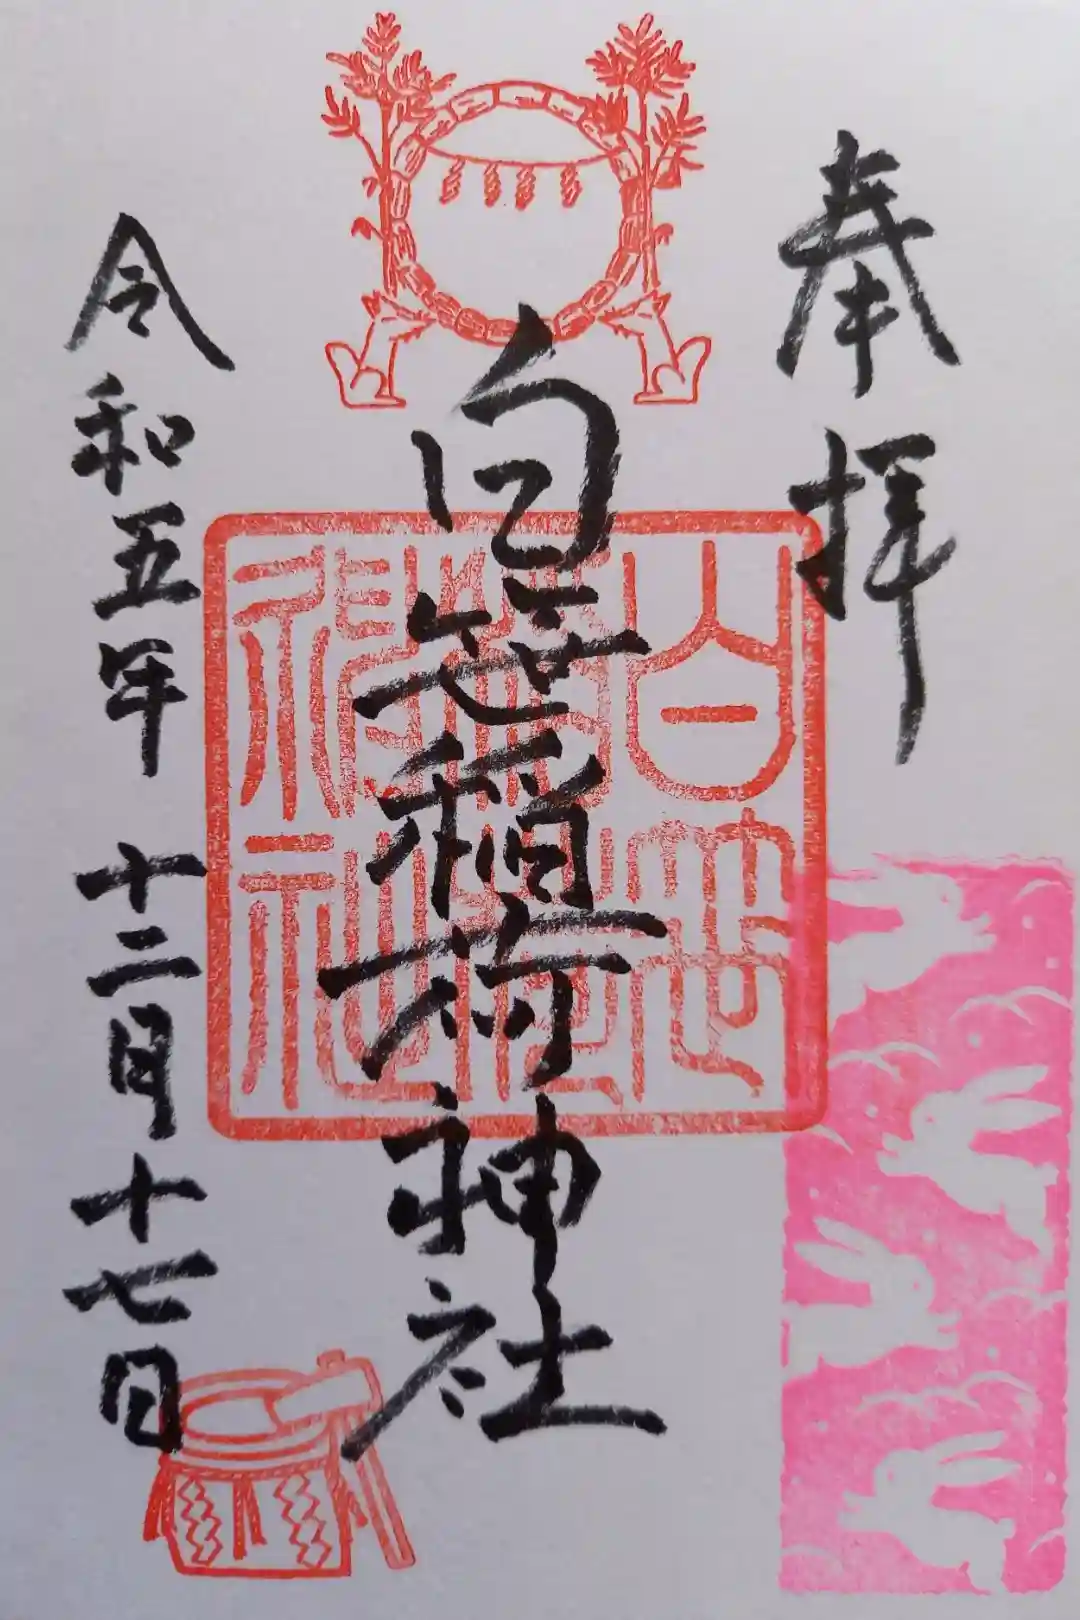 奉拝
白笹稲荷神社
令和五年十二月十七日
白笹
稲荷
神社